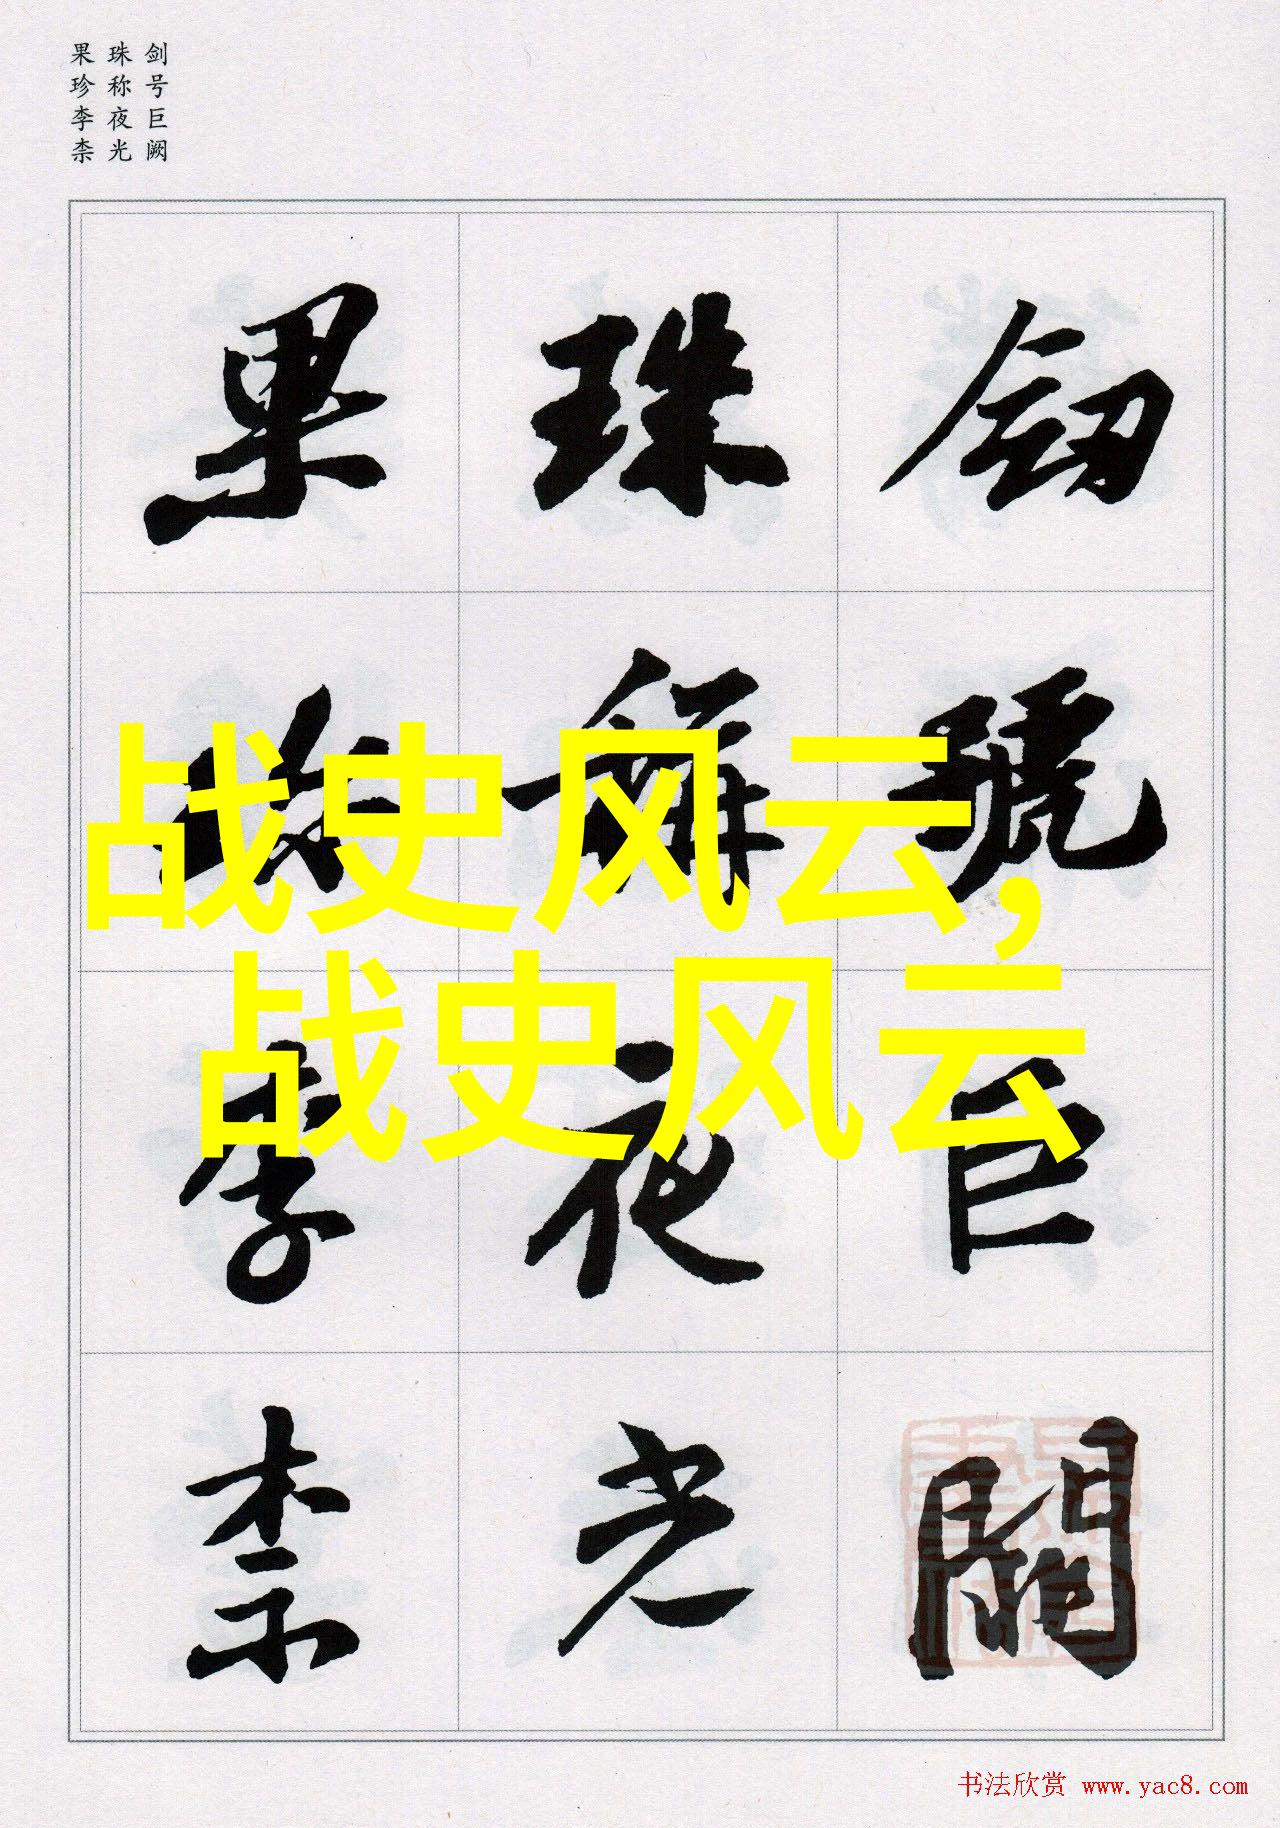 剑号巨阙
珠称夜光
果珍李柰
劎號巨闕
珠稱夜光
果珍李柰
战史风云,
战史风云
书法欣赏 www.yac8.com